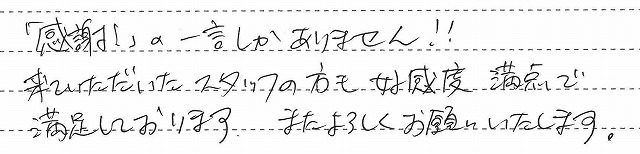 「感謝!」の一言しかありません!!
来ていただいたスタッフの方も好感度 満点で
満足しております また よろしくお願いいたします。